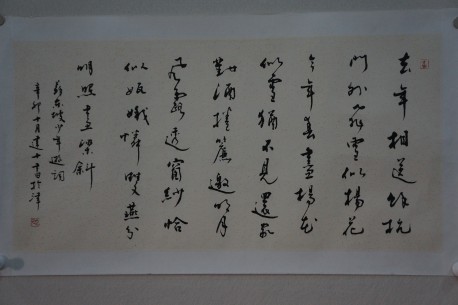 去年相送餘杭
門外飛雪似楊花
今年春盡楊花
似雪猶不見還家
對酒捲簾邀明月
風露透窗紗恰
似姮娥憐雙燕分
明照畫梁斜
蘇東坡少年遊詞
辛卯十月於津